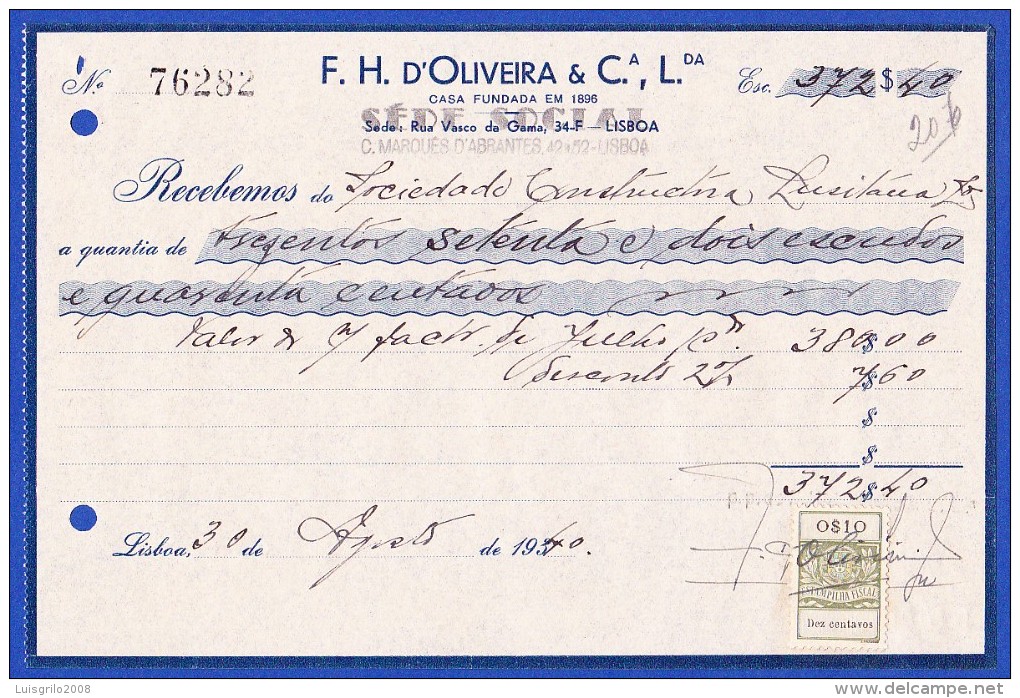 Nº 76282
F. H. D'OLIVEIRA & C.ᴬ, L.ᴰᴬ
Esc. 372$40
CASA FUNDADA EM 1896
SÉDE SOCIAL
Séde: Rua Vasco da Gama, 34-F — LISBOA
C. MARQUÊS D'ABRANTES, 42 52-LISBOA
Recebemos do Sociedade Constructora Lusitana
a quantia de trezentos setenta e dois escudos
e quarenta centavos
Valor de factr. de Julho 380$00
Desconto 2% 7$60
$
$
372$40
0$10
Lisboa, 30 de Agosto de 1940.
ESTAMPILHA FISCAL
Dez centavos
Luisgrilo2008
delcampe.net